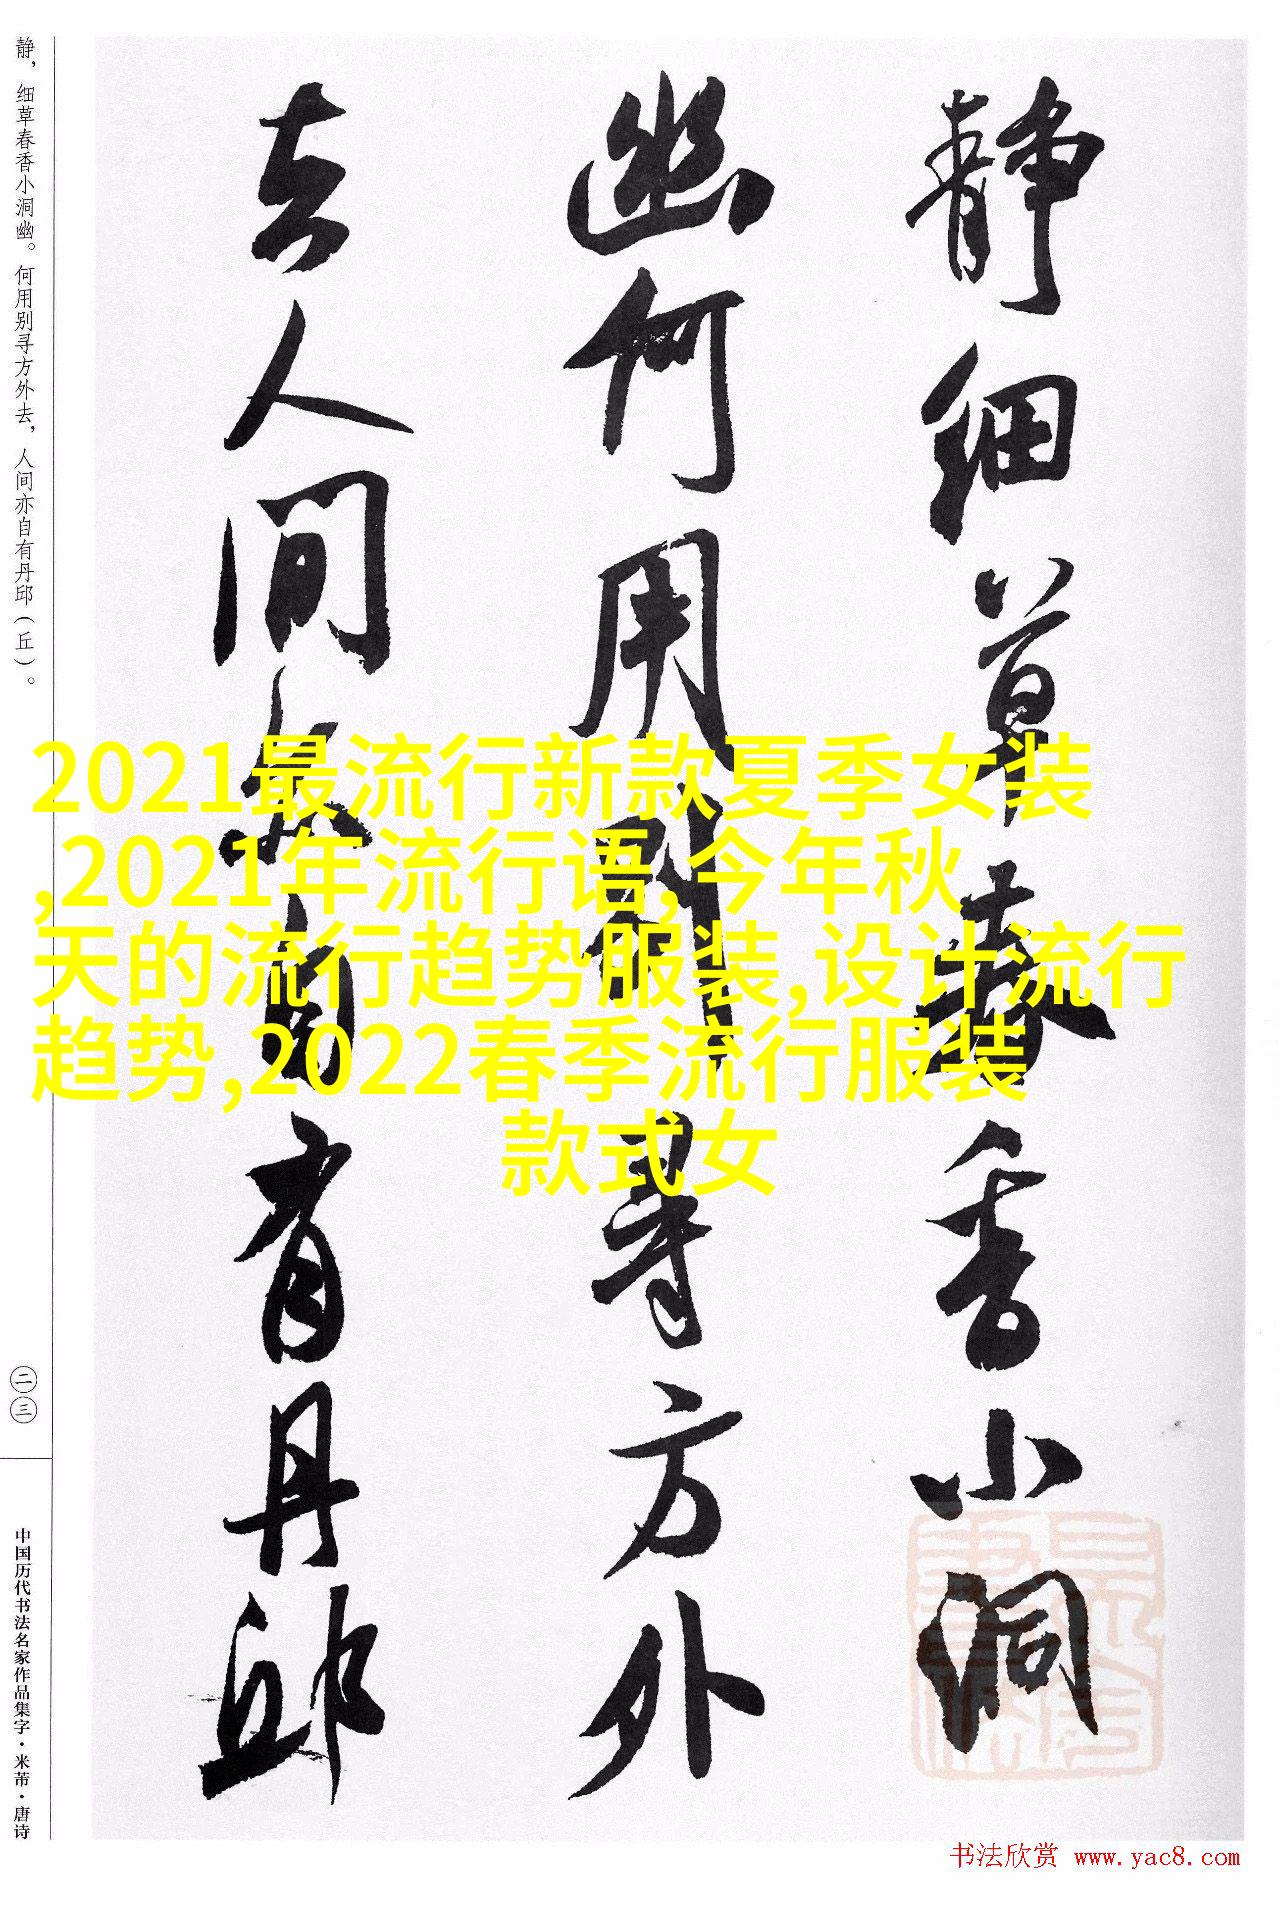 静细草春香小洞
幽何用别寻方外
去人间亦自有丹邱
静，细草春香小洞幽。何用别寻方外去，人间亦自有丹邱（丘）。
二三
中国历代书法名家作品集字·米芾·唐诗
2021最流行新款夏季女装
,2021年流行语,今年秋
天的流行趋势服装,设计流行
趋势,2022春季流行服装
款式女
书法欣赏 www.yac8.com